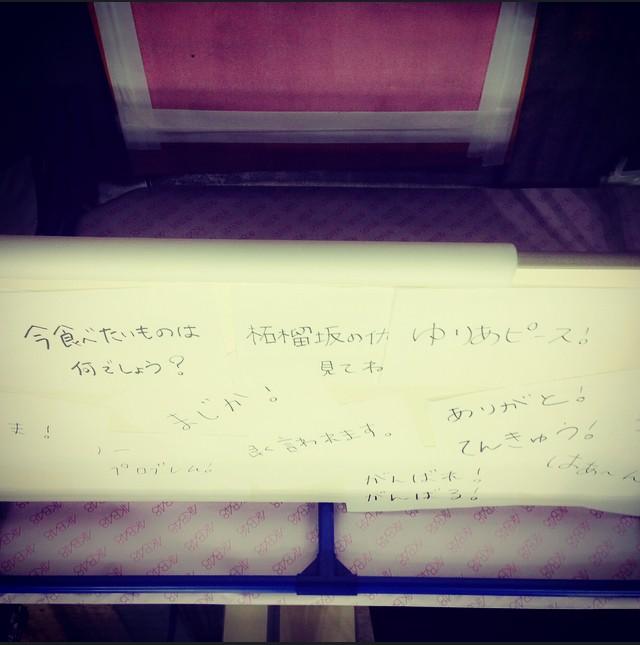 今食べたいものは
何でしょう?
柘榴坂の仇
見てね
ゆりあピース!
まじか!
良く言われます。
ありがと!
てんきゅう!
はぁ〜ん
プログレム!
がんばれ!
がんばろ!